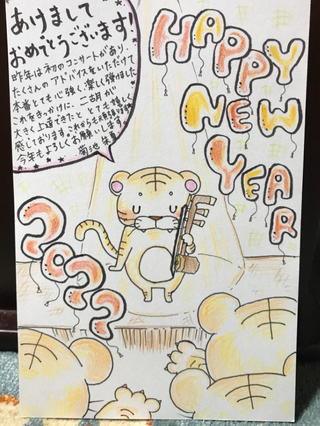 あけまして
おめでとうございます!
昨年は初のコンサートがあり、
たくさんのアドバイスをいただけて
本番とても心強く楽しく強けました
これをきっかけに、二胡が
大きく上達できたと とても嬉しく
感じております。これからも
今年もよろしくお願いします。
菊池
HAPPY
NEW
YEAR
2022